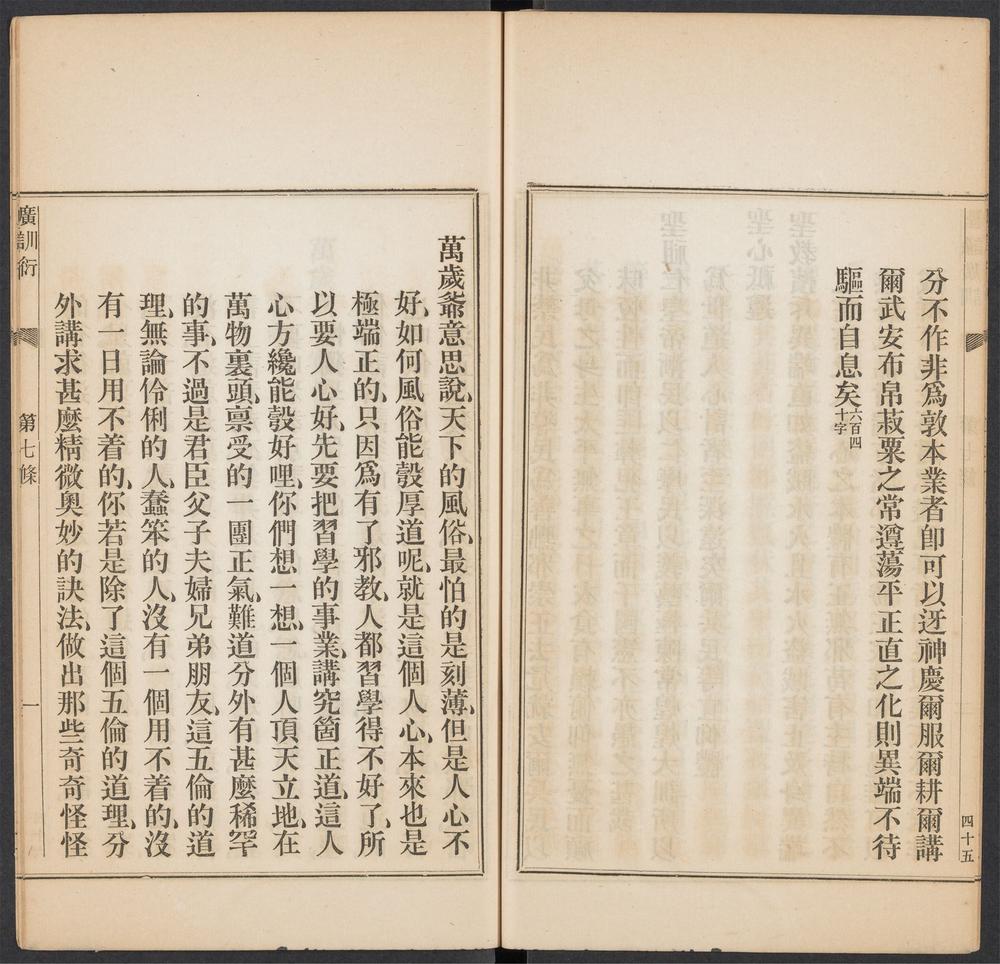 分不作非爲敦本業者卽可以迓神慶爾服爾耕爾講
爾武安布帛菽粟之常遵蕩平正直之化則異端不待
驅而自息矣六百四十字
四十五
萬歲爺意思說、天下的風俗、最怕的是刻薄、但是人心不
好、如何風俗能彀厚道呢、就是這個人心、本來也是
極端正的、只因爲有了邪教、人都習學得不好了、所
以要人心好、先要把習學的事業、講究箇正道、這人
心方纔能彀好哩、你們想一想、一個人頂天立地、在
萬物裏頭、禀受的一團正氣、難道分外有甚麼稀罕
的事、不過是君臣父子夫婦兄弟朋友、這五倫的道
理、無論伶俐的人、蠢笨的人、沒有一個用不着的、沒
有一日用不着的、你若是除了這個五倫的道理、分
外講求甚麼精微奧妙的訣法、做出那些奇奇怪怪
廣訓衍
第七條
一